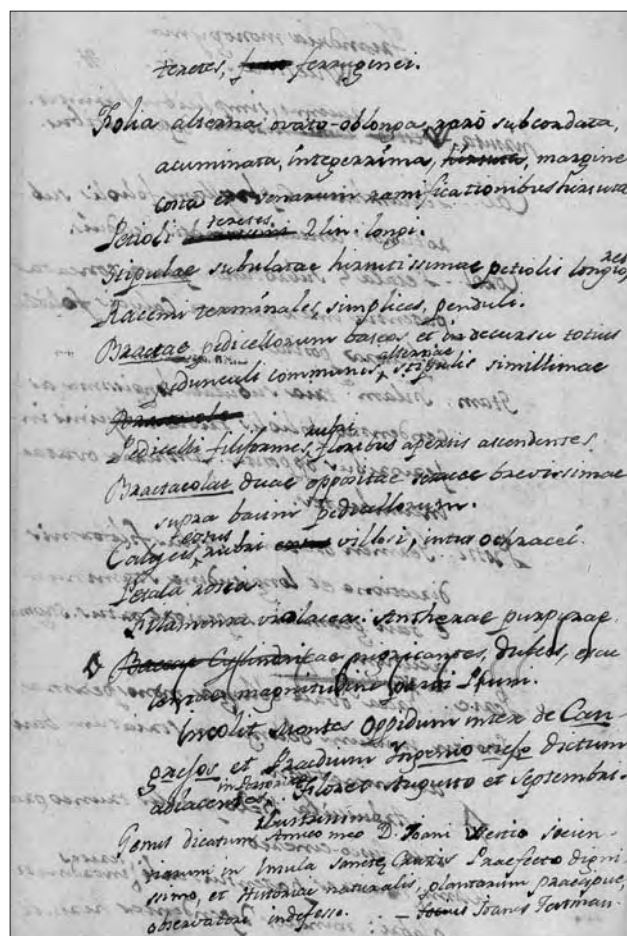 teretes, ferruginei.
Folia alterna ovato-oblonga, raró subcordata,
acuminata, integerrima, hirsuta, margine
costa et venarum ramificationibus hirsuta
teretes
Petioli 2 lin. longi.
Stipulae subulatae hirsutissimae petiolis longiores
Racemi terminales, simplices, penduli.
Bractae pedicellorum baseos et in decursu totius
pedunculi communis, alternae stipulis simillimae
rubri
Pedicelli filiformes, floribus apertis ascendentes
Bracteolae duae oppositae brevissimae
supra basim pedicellorum.
Calyces rubri villosi, intra ochracei.
Petala rosea
Filamenta violacea. Antherae purpureae.
Baccae Cylindricae nigricantes, dulces,
magnitudine
Incolit Montes Oppidum inter de Can-
gresos et Praedium Ingenio viejo dictum
adjacentes. Floret Augusto et Septembri.
Genus dicatum Amico meo D. Joani Vestio scien-
tiarum in Insula Sanctae Crucis Praefecto digni-
ssimo, et Historiae naturalis, plantarum praecipue,
observatori indefesso. — Joanis